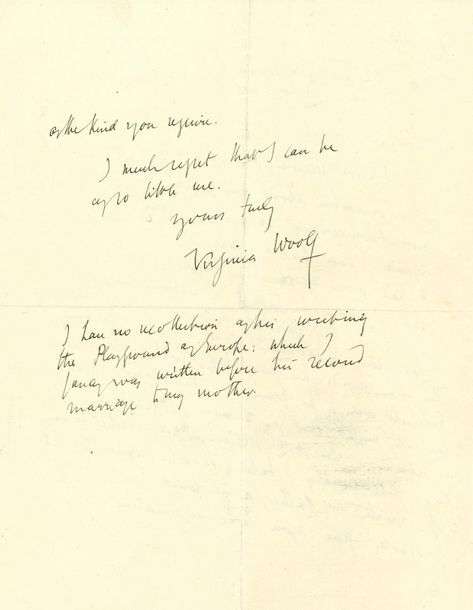 of the kind you require.
I much regret that I can be
of so little use.
Yours truly
Virginia Woolf
I have no recollection of his writing
the Playground of Europe: which I
fancy was written before his second
marriage to my mother